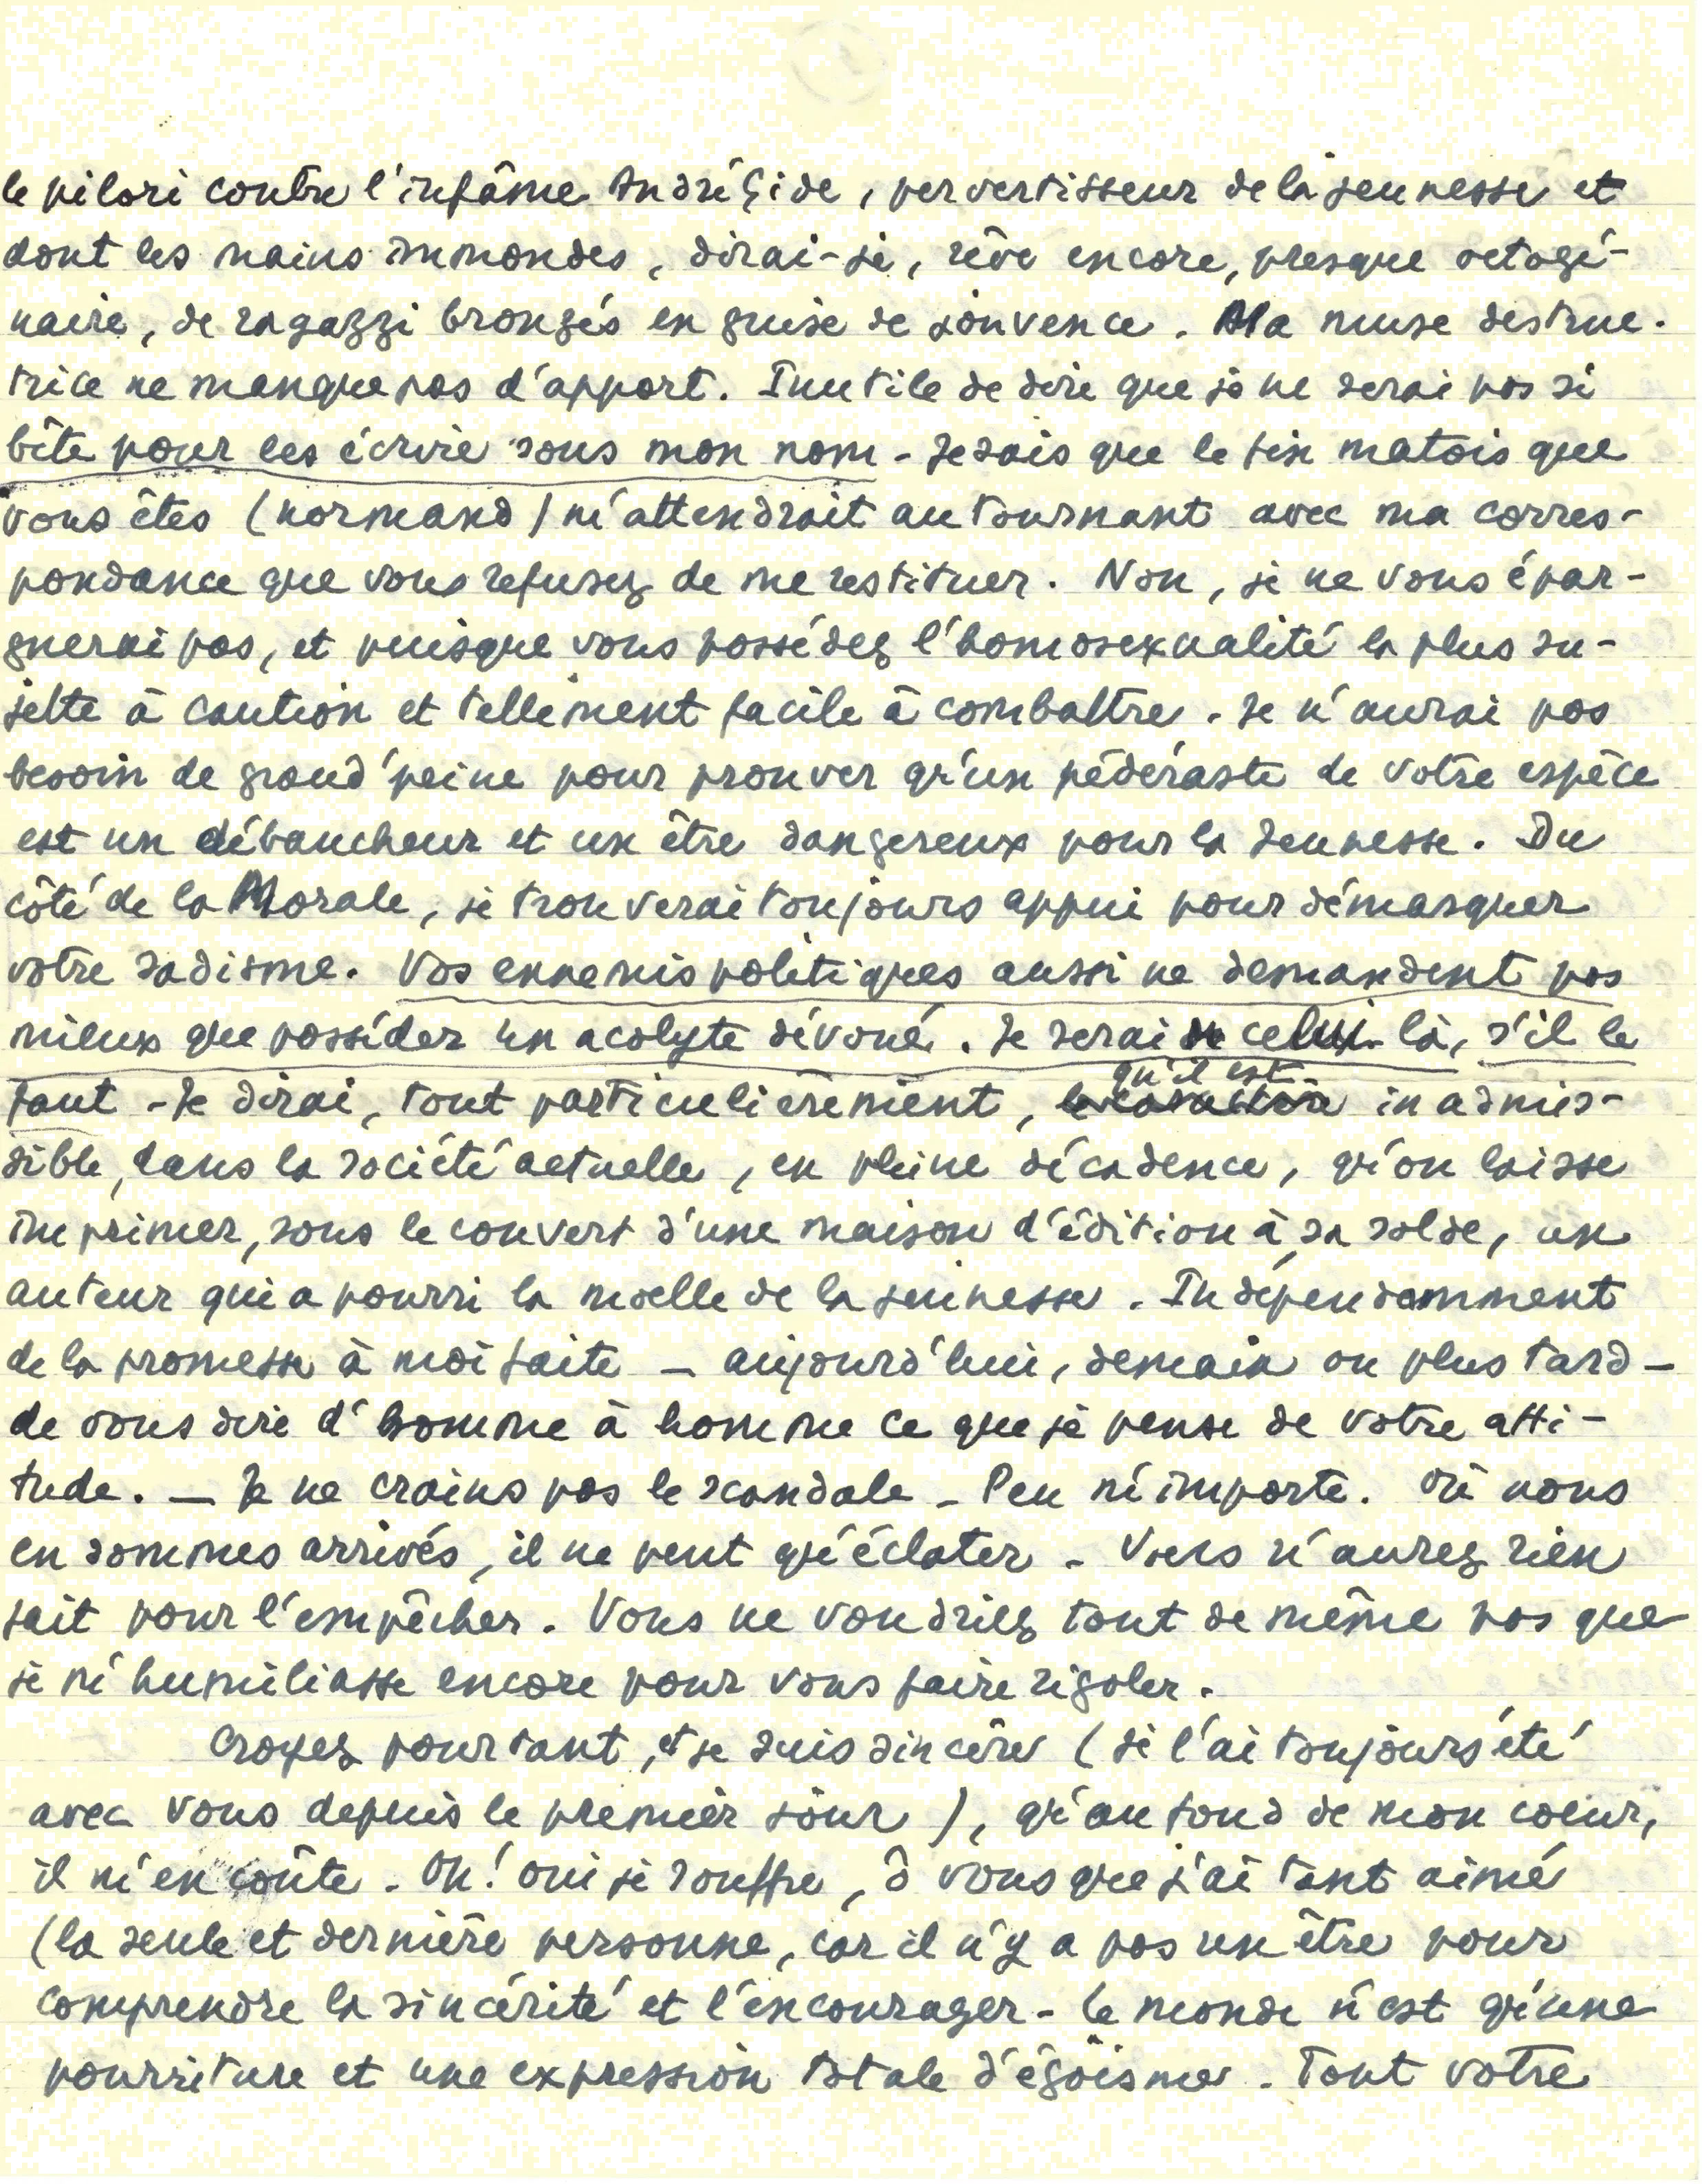 le pilori contre l'infâme André Gide, pervertisseur de la jeunesse et
dont les mains immondes, dirai-je, rêve encore, presque octogé-
naire, de ragazzi bronzés en guise de jouvence. Ma muse destruc-
trice ne manque pas d'apport. Inutile de dire que je ne serai pas si
bête pour les écrire sous mon nom - Je sais que le fin matois que
vous êtes (normand) m'attendrait au tournant avec ma corres-
pondance que vous refusez de me restituer. Non, je ne vous épar-
gnerai pas, et puisque vous possédez l'homosexualité la plus su-
jette à caution et tellement facile à combattre. Je n'aurai pas
besoin de grand'peine pour prouver qu'un pédéraste de votre espèce
est un débaucheur et un être dangereux pour la jeunesse. Du
côté de la Morale, je trouverai toujours appui pour démasquer
votre sadisme. Vos ennemis politiques aussi ne demandent pas
mieux que posséder un acolyte dévoué. Je serai celui-là, s'il le
faut - Je dirai, tout particulièrement, qu'il est inadmis-
sible, dans la société actuelle, en pleine décadence, qu'on laisse
imprimer, sous le couvert d'une maison d'édition à sa solde, un
auteur qui a pourri la moelle de la jeunesse. Indépendamment
de la promesse à moi faite - aujourd'hui, demain ou plus tard -
de vous dire d'homme à homme ce que je pense de votre atti-
tude. - Je ne crains pas le scandale - Peu m'importe. Où nous
en sommes arrivés, il ne peut qu'éclater - Vous n'aurez rien
fait pour l'empêcher. Vous ne voudriez tout de même pas que
je m'humiliasse encore pour vous faire rigoler.
Croyez pourtant, et je suis sincère (je l'ai toujours été
avec vous depuis le premier jour), qu'au fond de mon coeur,
il m'en coûte - Oh! oui je souffre, ô vous que j'ai tant aimé
(la seule et dernière personne, car il n'y a pas un être pour
comprendre la sincérité et l'encourager - Le monde n'est qu'une
pourriture et une expression totale d'égoïsme - Tout votre